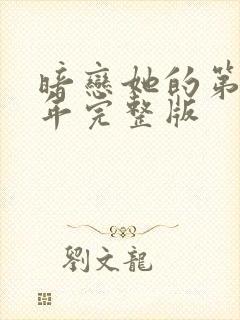 暗戀她的第
年完整版
劉文龍